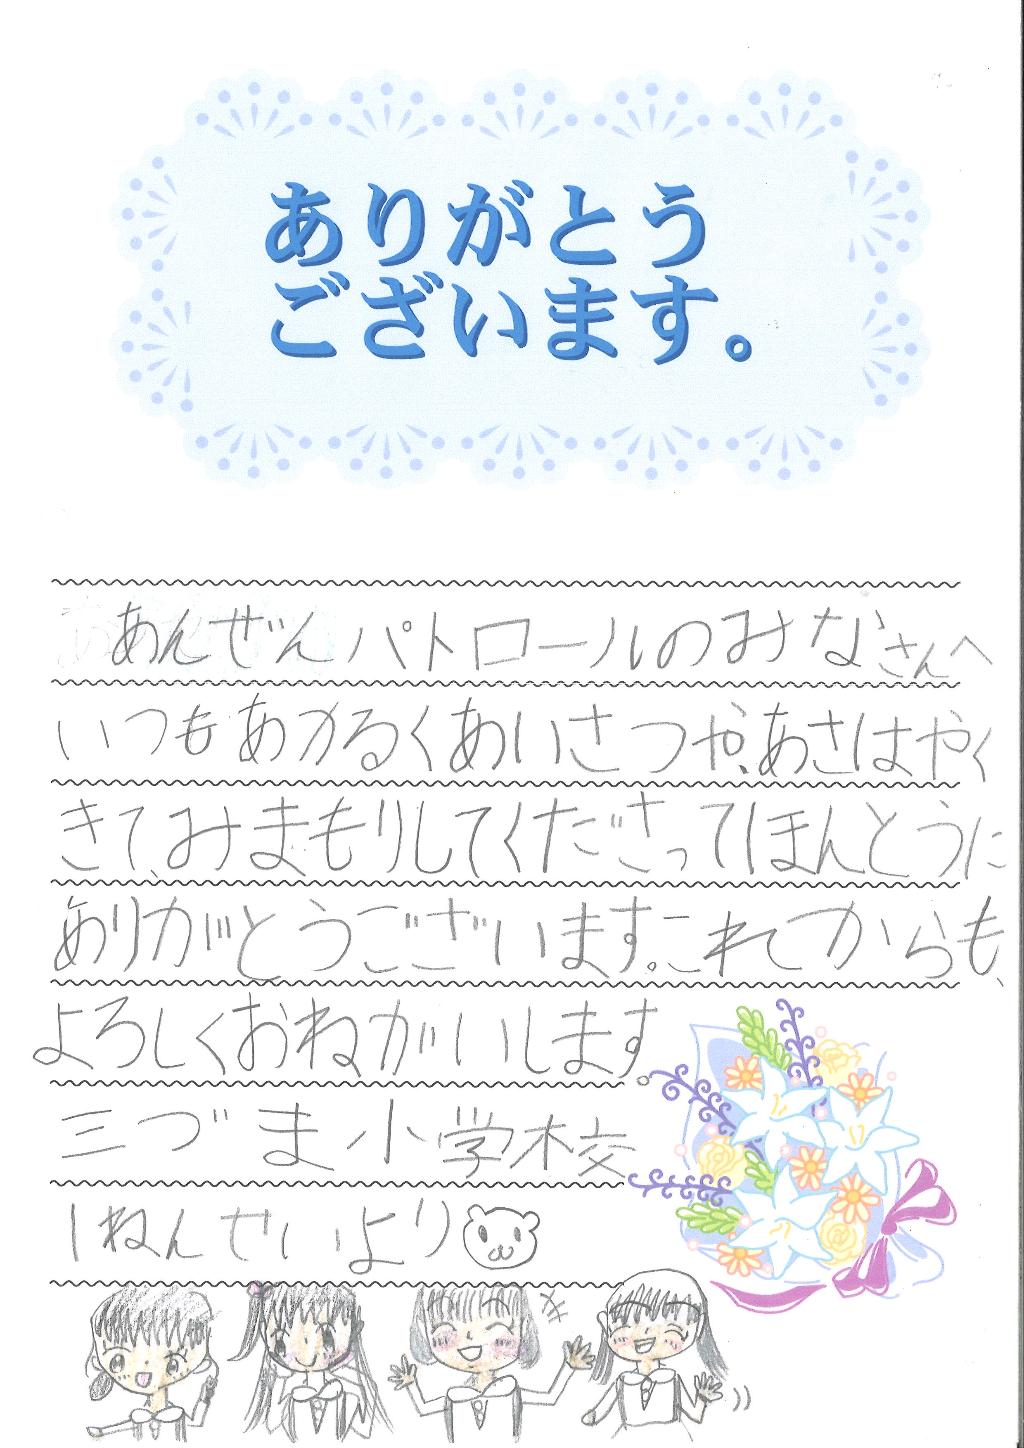 ありがとう
ございます。
あんぜんパトロールのみなさんへ
いつもあかるくあいさつや、あさはやく
きて、みまもりしてくださってほんとうに
ありがとうございます。これてからも、
よろしくおねがいします。
三づま小学校
1ねんせいより